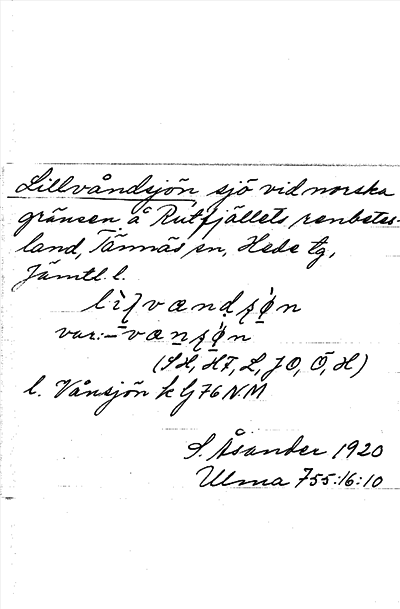 Lillvåndsjön sjö vid norska
gränsen å Rutfjällets renbetes-
land, Tännäs sn, Hede tg,
Jämtl. l.
lìlvændʂøn
var: -væṇʂøn
(SH, HF, L, JO, Ö, H)
l. Vånsjön k G76 NM
S. Åsander 1920
Ulma 755:16:10